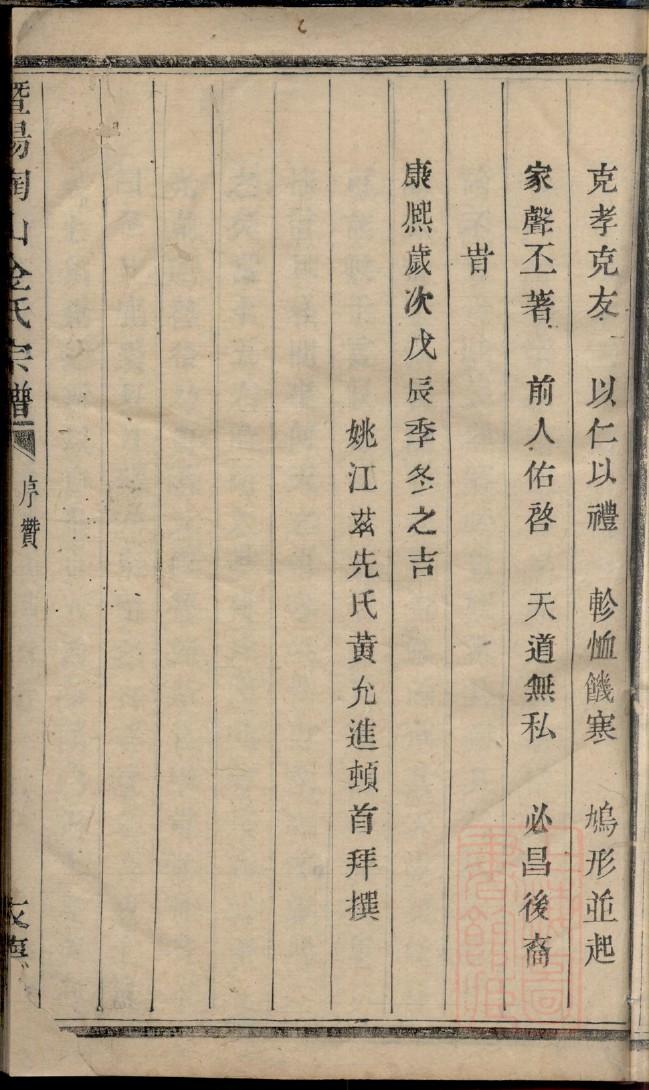 克孝克友　以仁以禮　軫恤饑寒　鳩形並起
家聲丕著　前人佑啓　天道無私　必昌後裔
旹
康熙歲次戊辰季冬之吉
姚江茲先氏黃允進頓首拜撰
暨陽南山金氏宗譜　序贊